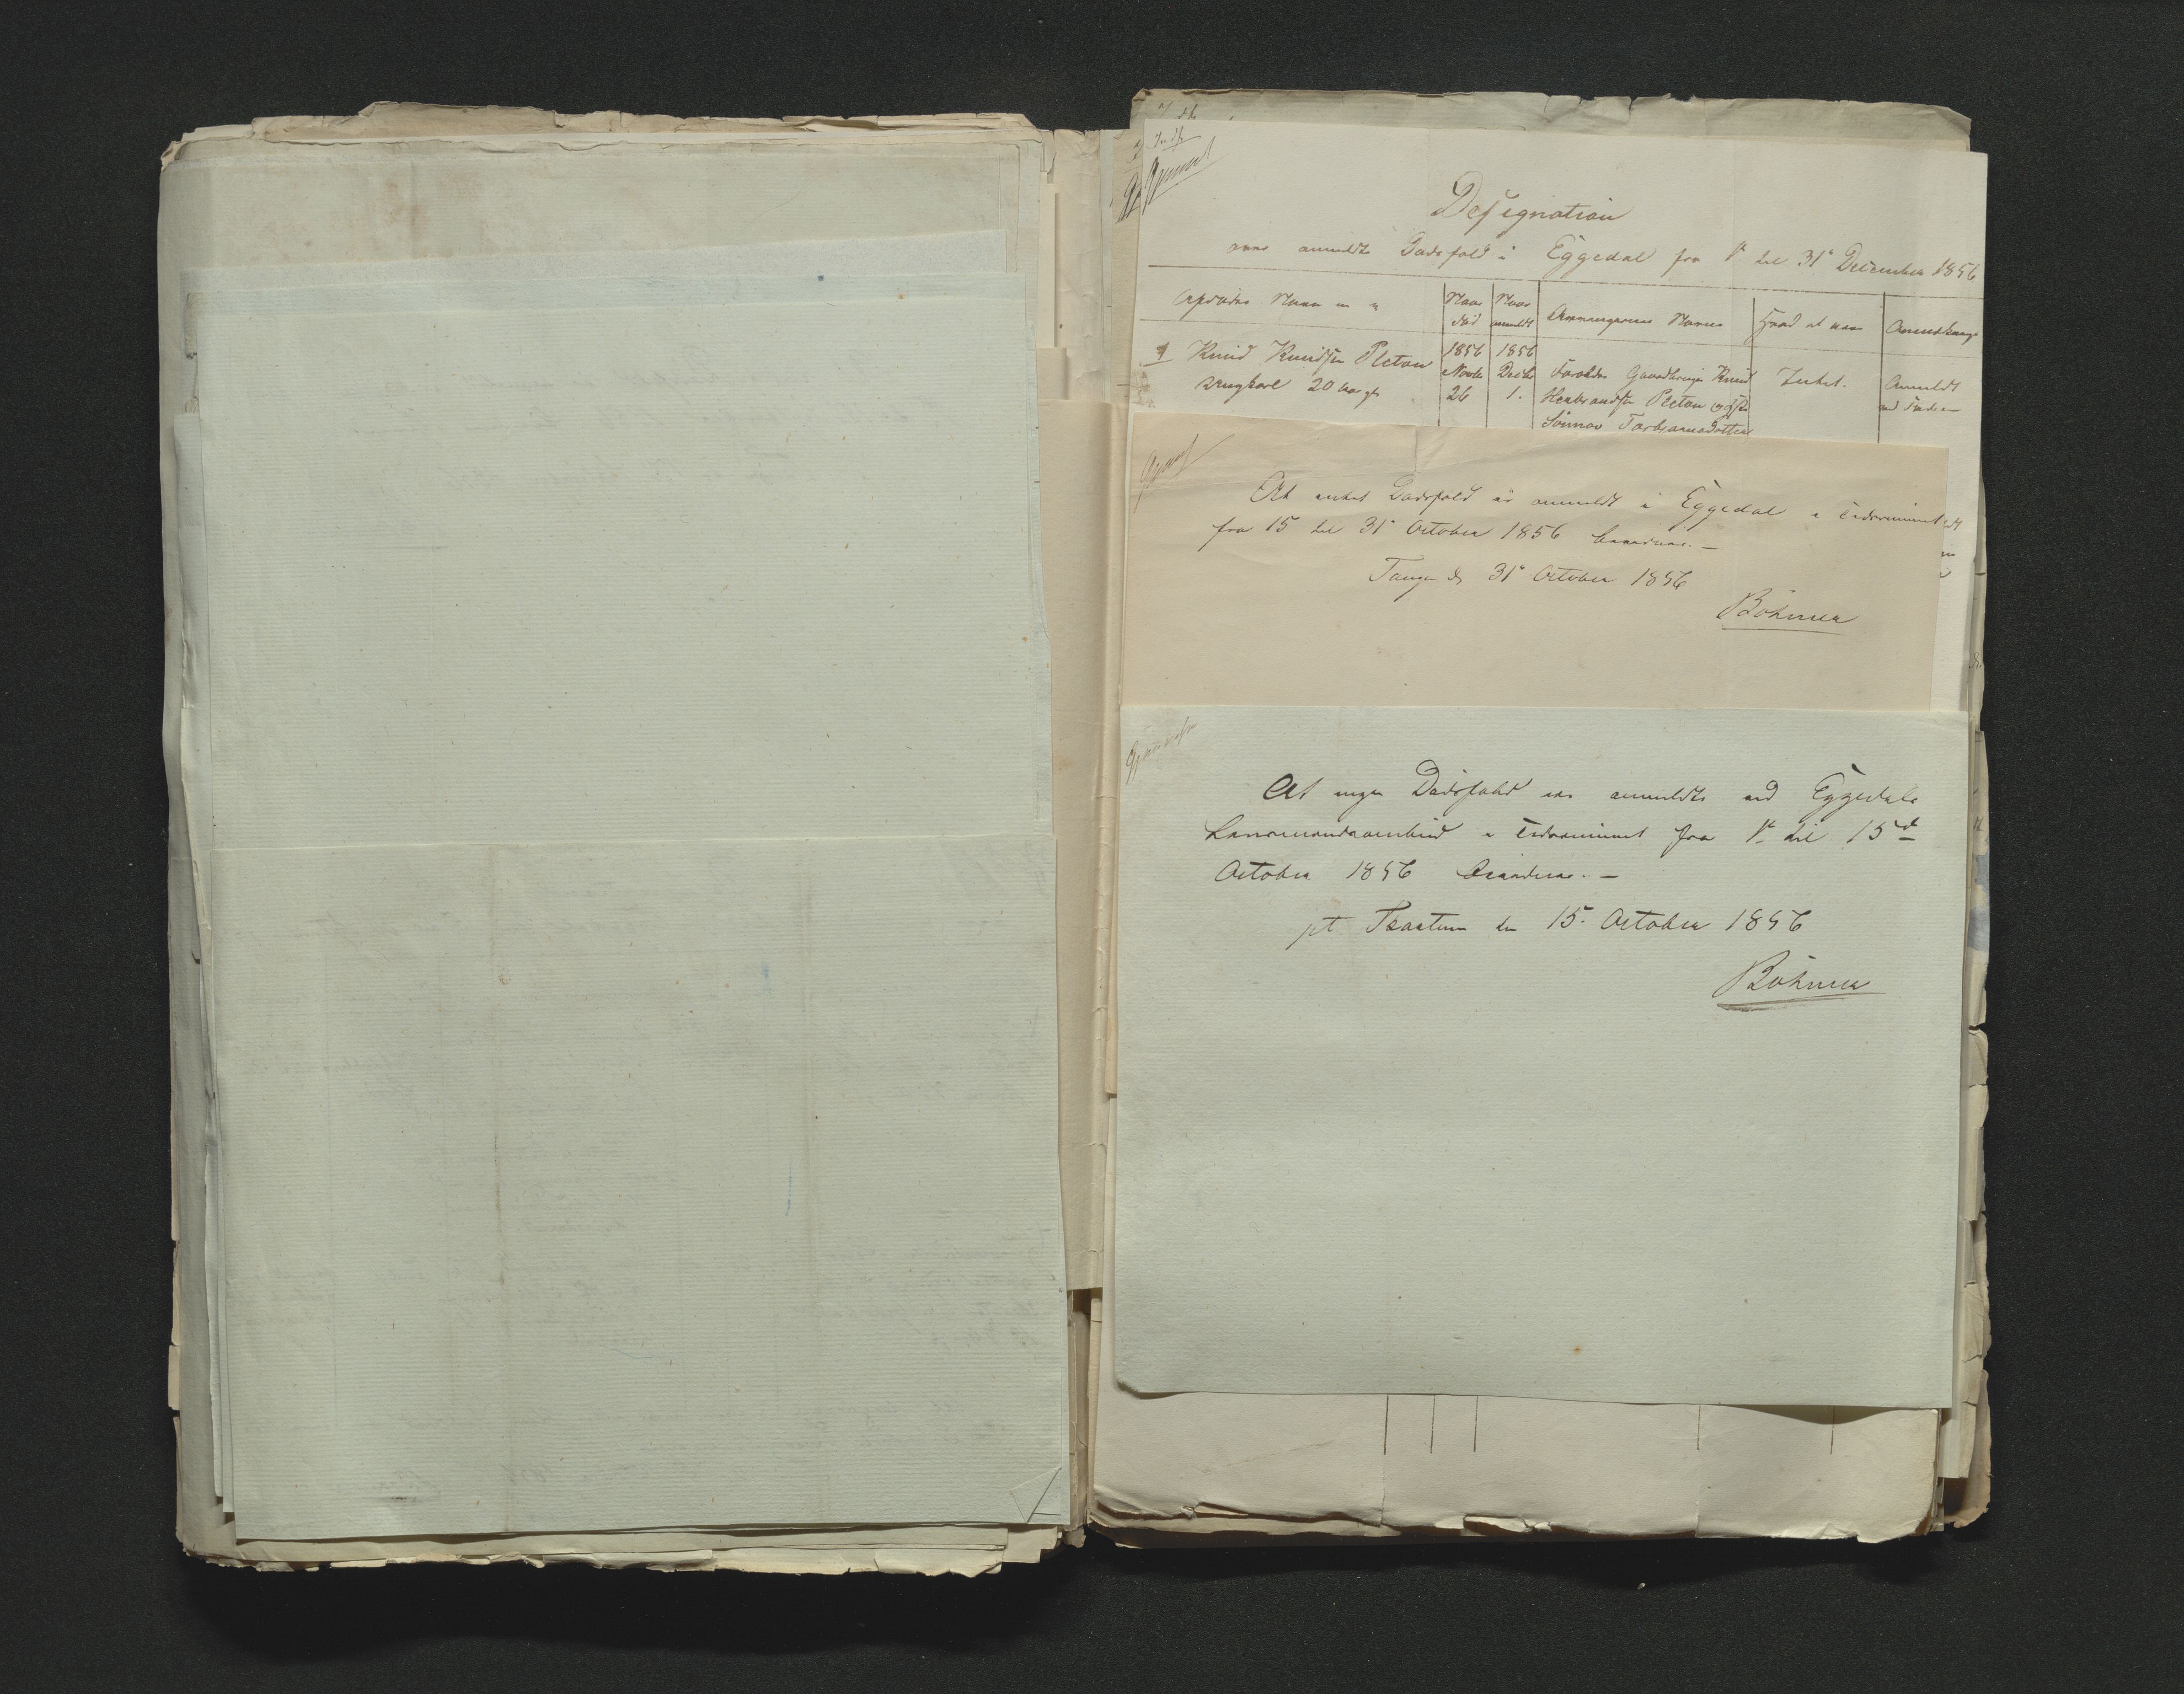 Indf
Gjenn
Designation
over anmeldte Dødsfald i Eggedal fra 1ste til 31te December 1856
Afdødes Navn
Naar død
Naar anmeldt
Arvingernes Navne
Hvad at arve
Anmærkninger
1
Knud Knudsen Pleton
ungkarl 20 Aar gl
1856
Novbr
26
1856
Decbr
1.
Forældre Gaardbruger Knud
Herbrandsen Pleton og
Sønnov Torbjørnsdatter
Intet.
Anmeldt
At intet Dødsfald er anmeldt i Eggedal i Tidsrummet
fra 15 til 31te October 1856 bevidnes. —
Tangen d. 31te October 1856
Böhmer
At ingen Dødsfald er anmeldte ved Eggedals
Lensmandsombud i Tidsrummet fra 1ste til 15de
October 1856 bevidnes. —
pt. den 15. October 1856
Böhmer